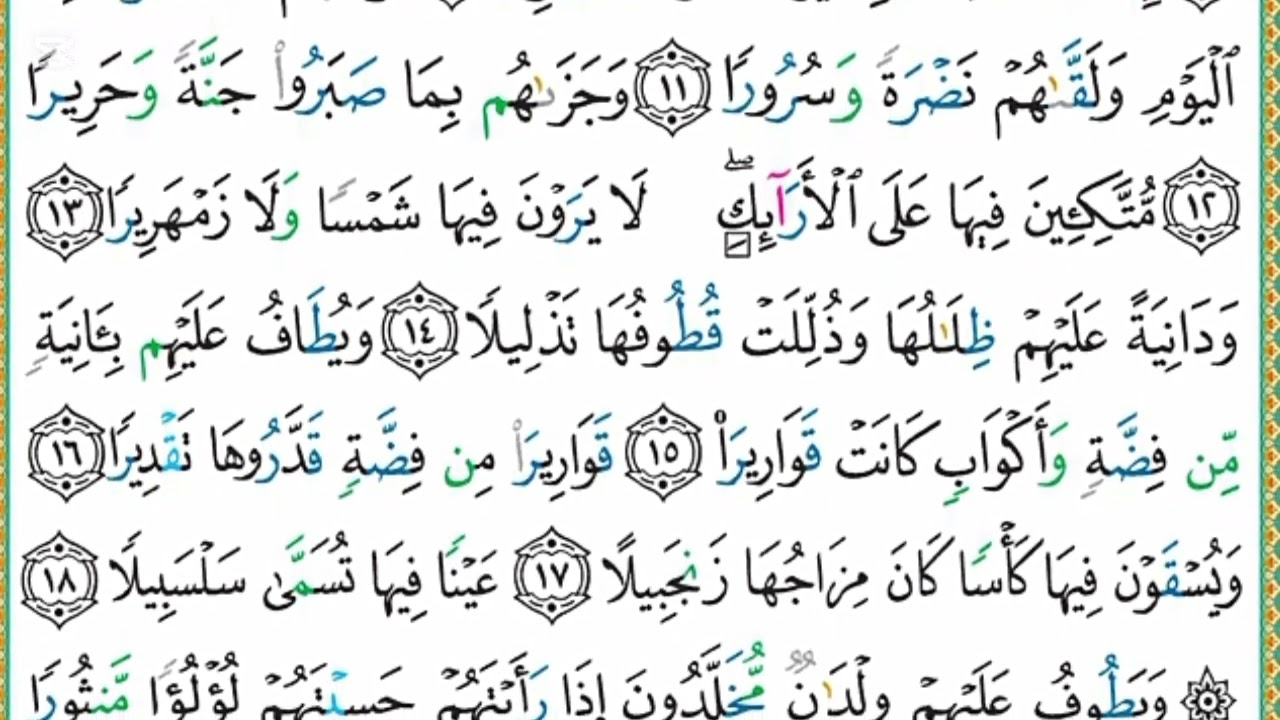 ٱلْيَوْمِ وَلَقَّىٰهُمْ نَضْرَةً وَسُرُورًا ١١ وَجَزَىٰهُم بِمَا صَبَرُوا۟ جَنَّةً وَحَرِيرًا
١٢ مُّتَّكِـِٔينَ فِيهَا عَلَى ٱلْأَرَآئِكِ ۖ لَا يَرَوْنَ فِيهَا شَمْسًا وَلَا زَمْهَرِيرًا ١٣
وَدَانِيَةً عَلَيْهِمْ ظِلَـٰلُهَا وَذُلِّلَتْ قُطُوفُهَا تَذْلِيلًا ١٤ وَيُطَافُ عَلَيْهِم بِـَٔانِيَةٍ
مِّن فِضَّةٍ وَأَكْوَابٍ كَانَتْ قَوَارِيرَا۠ ١٥ قَوَارِيرَا۟ مِن فِضَّةٍ قَدَّرُوهَا تَقْدِيرًا ١٦
وَيُسْقَوْنَ فِيهَا كَأْسًا كَانَ مِزَاجُهَا زَنجَبِيلًا ١٧ عَيْنًا فِيهَا تُسَمَّىٰ سَلْسَبِيلًا ١٨
۞ وَيَطُوفُ عَلَيْهِمْ وِلْدَٰنٌ مُّخَلَّدُونَ إِذَا رَأَيْتَهُمْ حَسِبْتَهُمْ لُؤْلُؤًا مَّنثُورًا